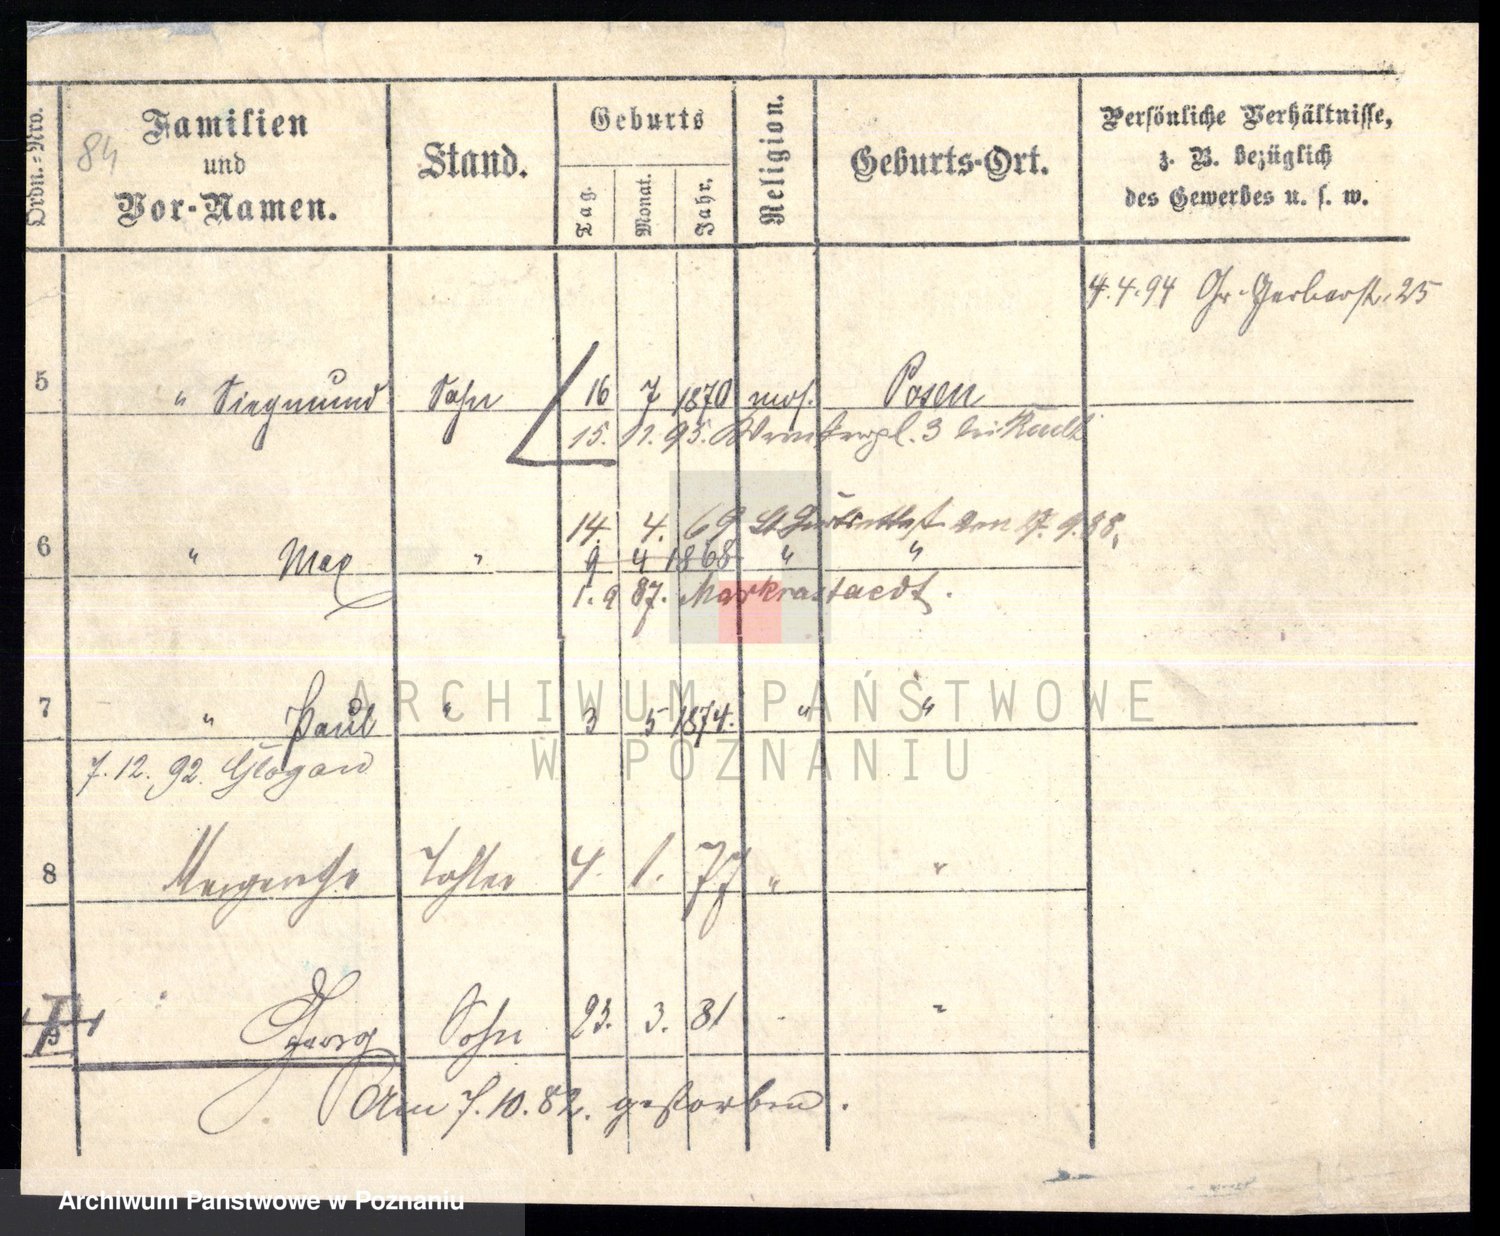 84
Ordn.-Nro.
Familien
und
Vor-Namen.
Stand.
Geburts
Tag.
Monat.
Jahr.
Religion.
Geburts-Ort.
Persönliche Verhältnisse,
z. B. bezüglich
des Gewerbes u. s. w.
4.4.94 Gr. Gerberstr. 25
5 " Siegmund Sohn 16 7 1870 mos. Posen
15. 11. 95. 3 bei
14. 4. 69 17. 9. 88.
6 " Max " 9 4 1868 " "
1. 9 87. Markranstaedt.
7 " Paul " 3 5 1874. " "
7. 12. 92. Glogau
8 Margarethe Tochter 4. 1. 77 " "
9 " Georg Sohn 23. 3. 81 "
Am 7. 10. 82. gestorben.
ARCHIWUM PAŃSTWOWE
W POZNANIU
Archiwum Państwowe w Poznaniu